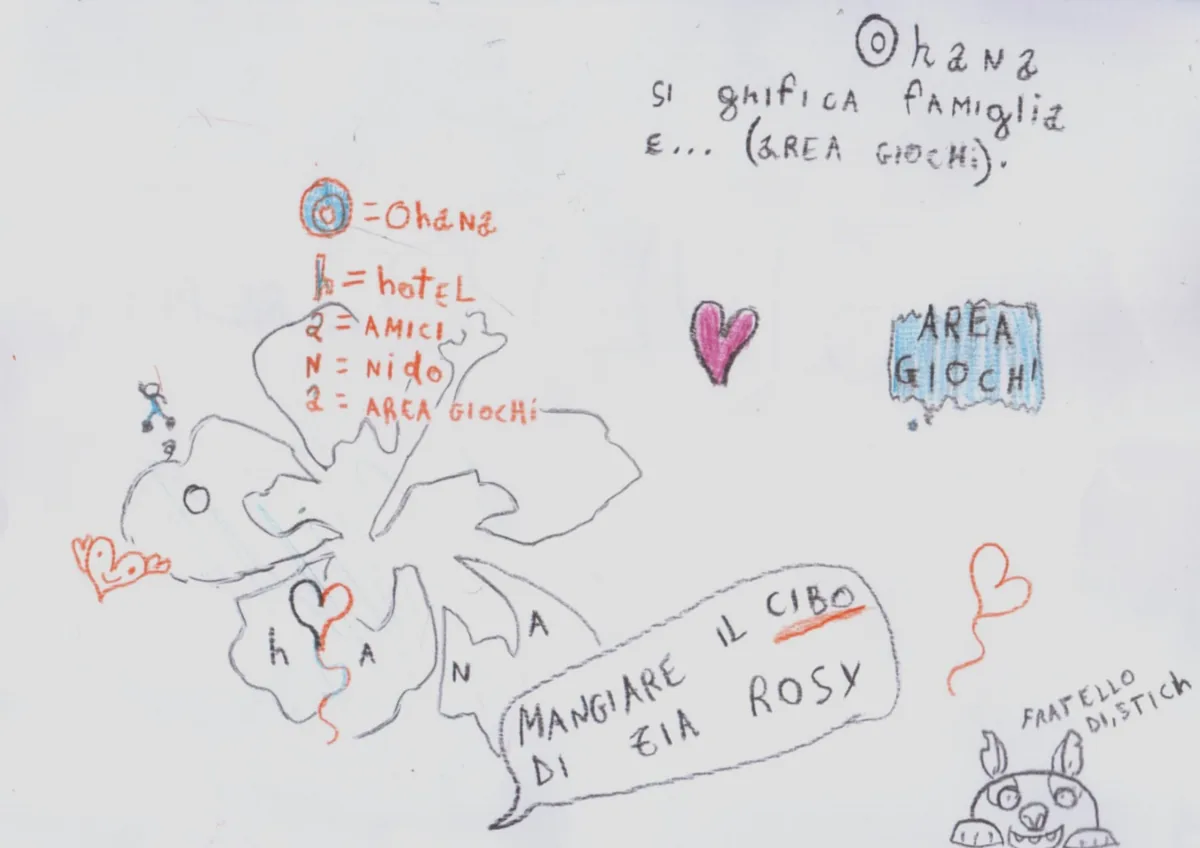 Ohana
SI gnifICA fAMiglia
E... (aREA GIOCHi).
O = Ohana
h = hotEL
a = AMICI
N = Nido
a = AREA GIOCHi
AREA
GIOCHI
a
O
h A
N
A
MANGIARE IL CIBO
DI ZIA ROSY
FRATELLO
DI,STICH